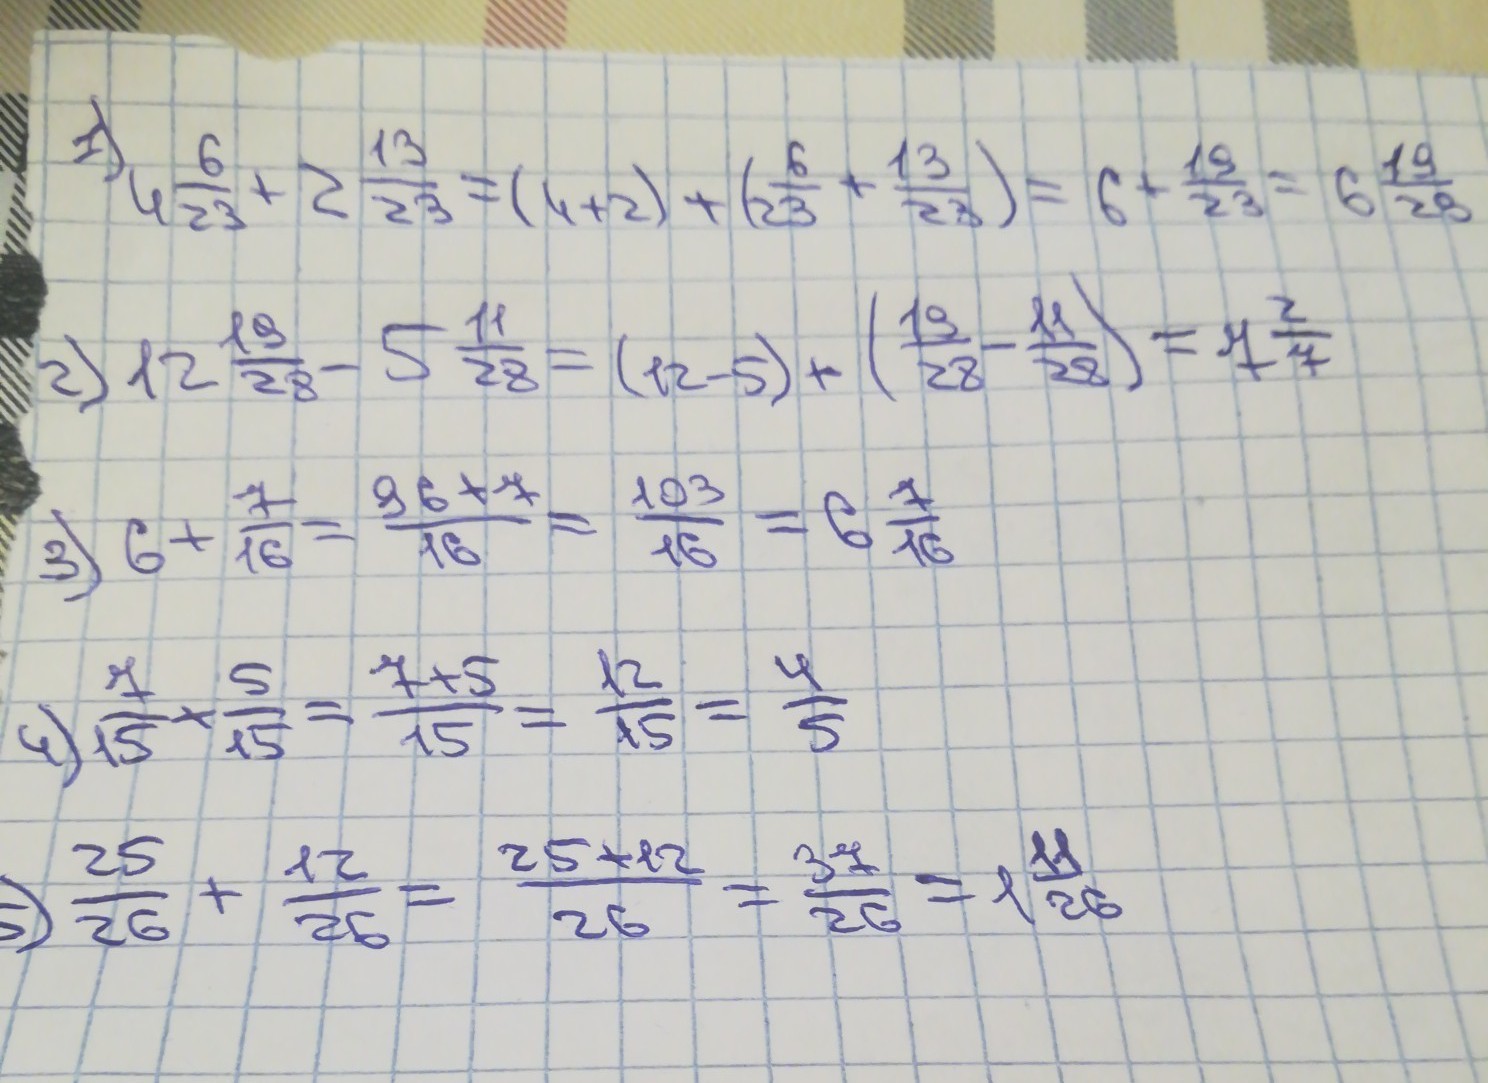 1) 4 6/23 + 2 13/23 = (4+2) + (6/23 + 13/23) = 6 + 19/23 = 6 19/23
2) 12 19/28 - 5 11/28 = (12-5) + (19/28 - 11/28) = 7 2/7
3) 6 + 7/16 = 96+7/16 = 103/16 = 6 7/16
4) 7/15 + 5/15 = 7+5/15 = 12/15 = 4/5
5) 25/26 + 12/26 = 25+12/26 = 37/26 = 1 11/26